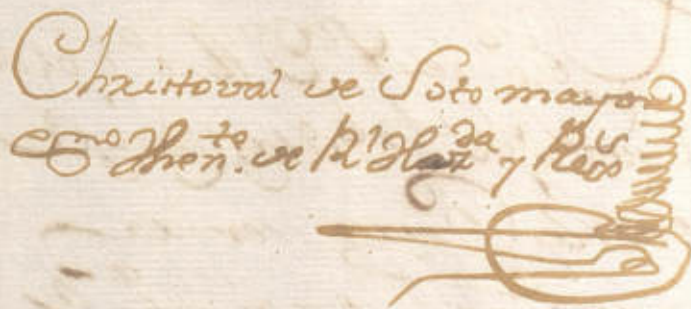 Christoval de Soto mayor
Essno Thente. de Rl Hazda y Regs